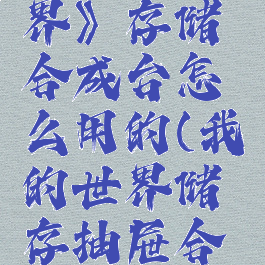 界》存储
合成台怎
么用的(我
的世界储
存抽屉合